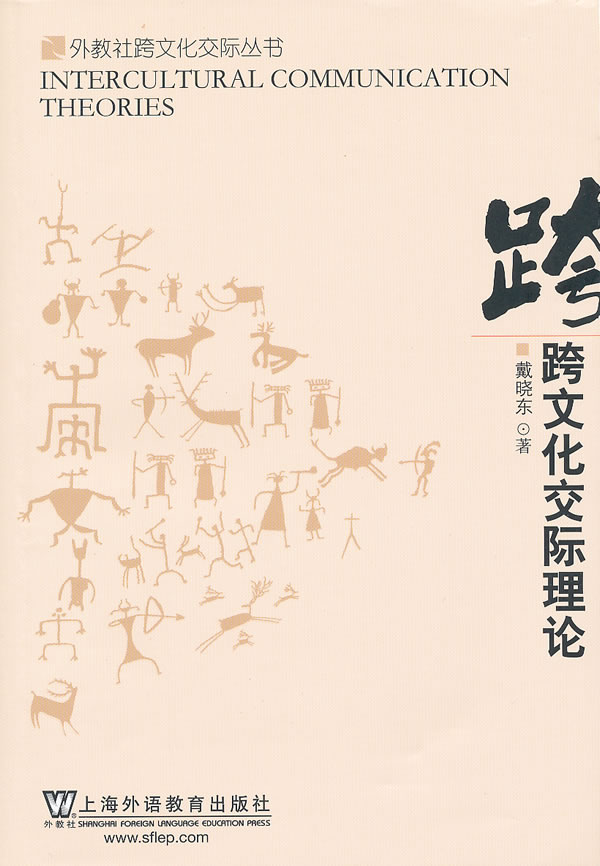 外教社跨文化交际丛书
INTERCULTURAL COMMUNICATION
THEORIES
跨
跨文化交际理论
戴晓东⊙著
W®
外教社
上海外语教育出版社
SHANGHAI FOREIGN LANGUAGE EDUCATION PRESS
www.sflep.com